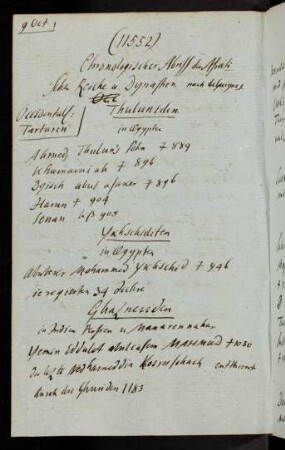 9 Oct 1
(11552)
Chronologischer Abriss der Asiati
schen Reiche u Dynastien nach
Occidental=
Tartaren
Thuluniden
in Ægypten
Ahmed Thulun's Sohn † 884
Khumaruiah † 896
Dgisch abul asaker † 896
Harun † 904
Senan bis 905
Ykhschiditen
in Ægypten
Abubekr Mohammed Ykhschid † 946
sie regierten 34 Jahre
Ghasneviden
in Indien Persien u Mawarennahar
Yemin Eddulet abulcasem Mahmud † 1030
Der letzte Khosruschach entthront
durch die Ghuriden 1183